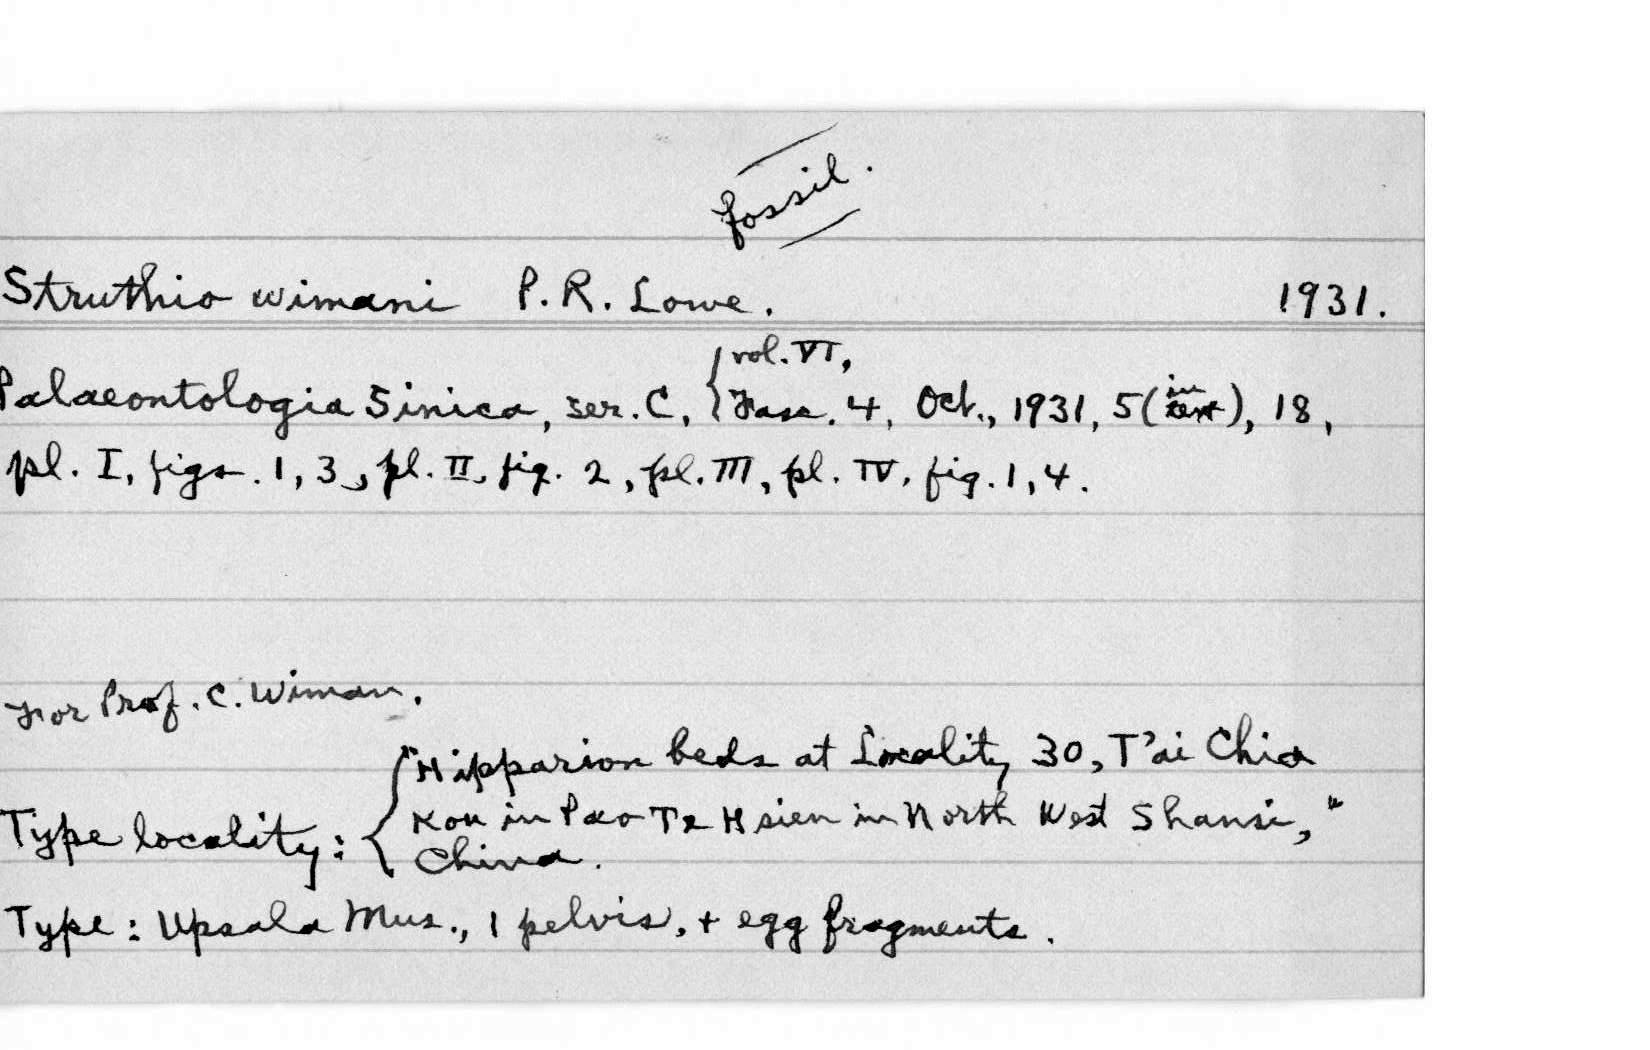 fossil.
Struthio wimani P. R. Lowe. 1931.
vol. VI,
Palaeontologia Sinica, ser. C, Fasc. 4, Oct., 1931, 5 (in text), 18,
pl. I, figs. 1, 3, pl. II, fig. 2, pl. III, pl. IV, fig. 1, 4.
For Prof. C. Wiman.
"Hipparion beds at Locality 30, T'ai Chia
Kou in Pao Te Hsien in North West Shansi,"
Type locality: China.
Type: Upsala Mus., 1 pelvis, + egg fragments.